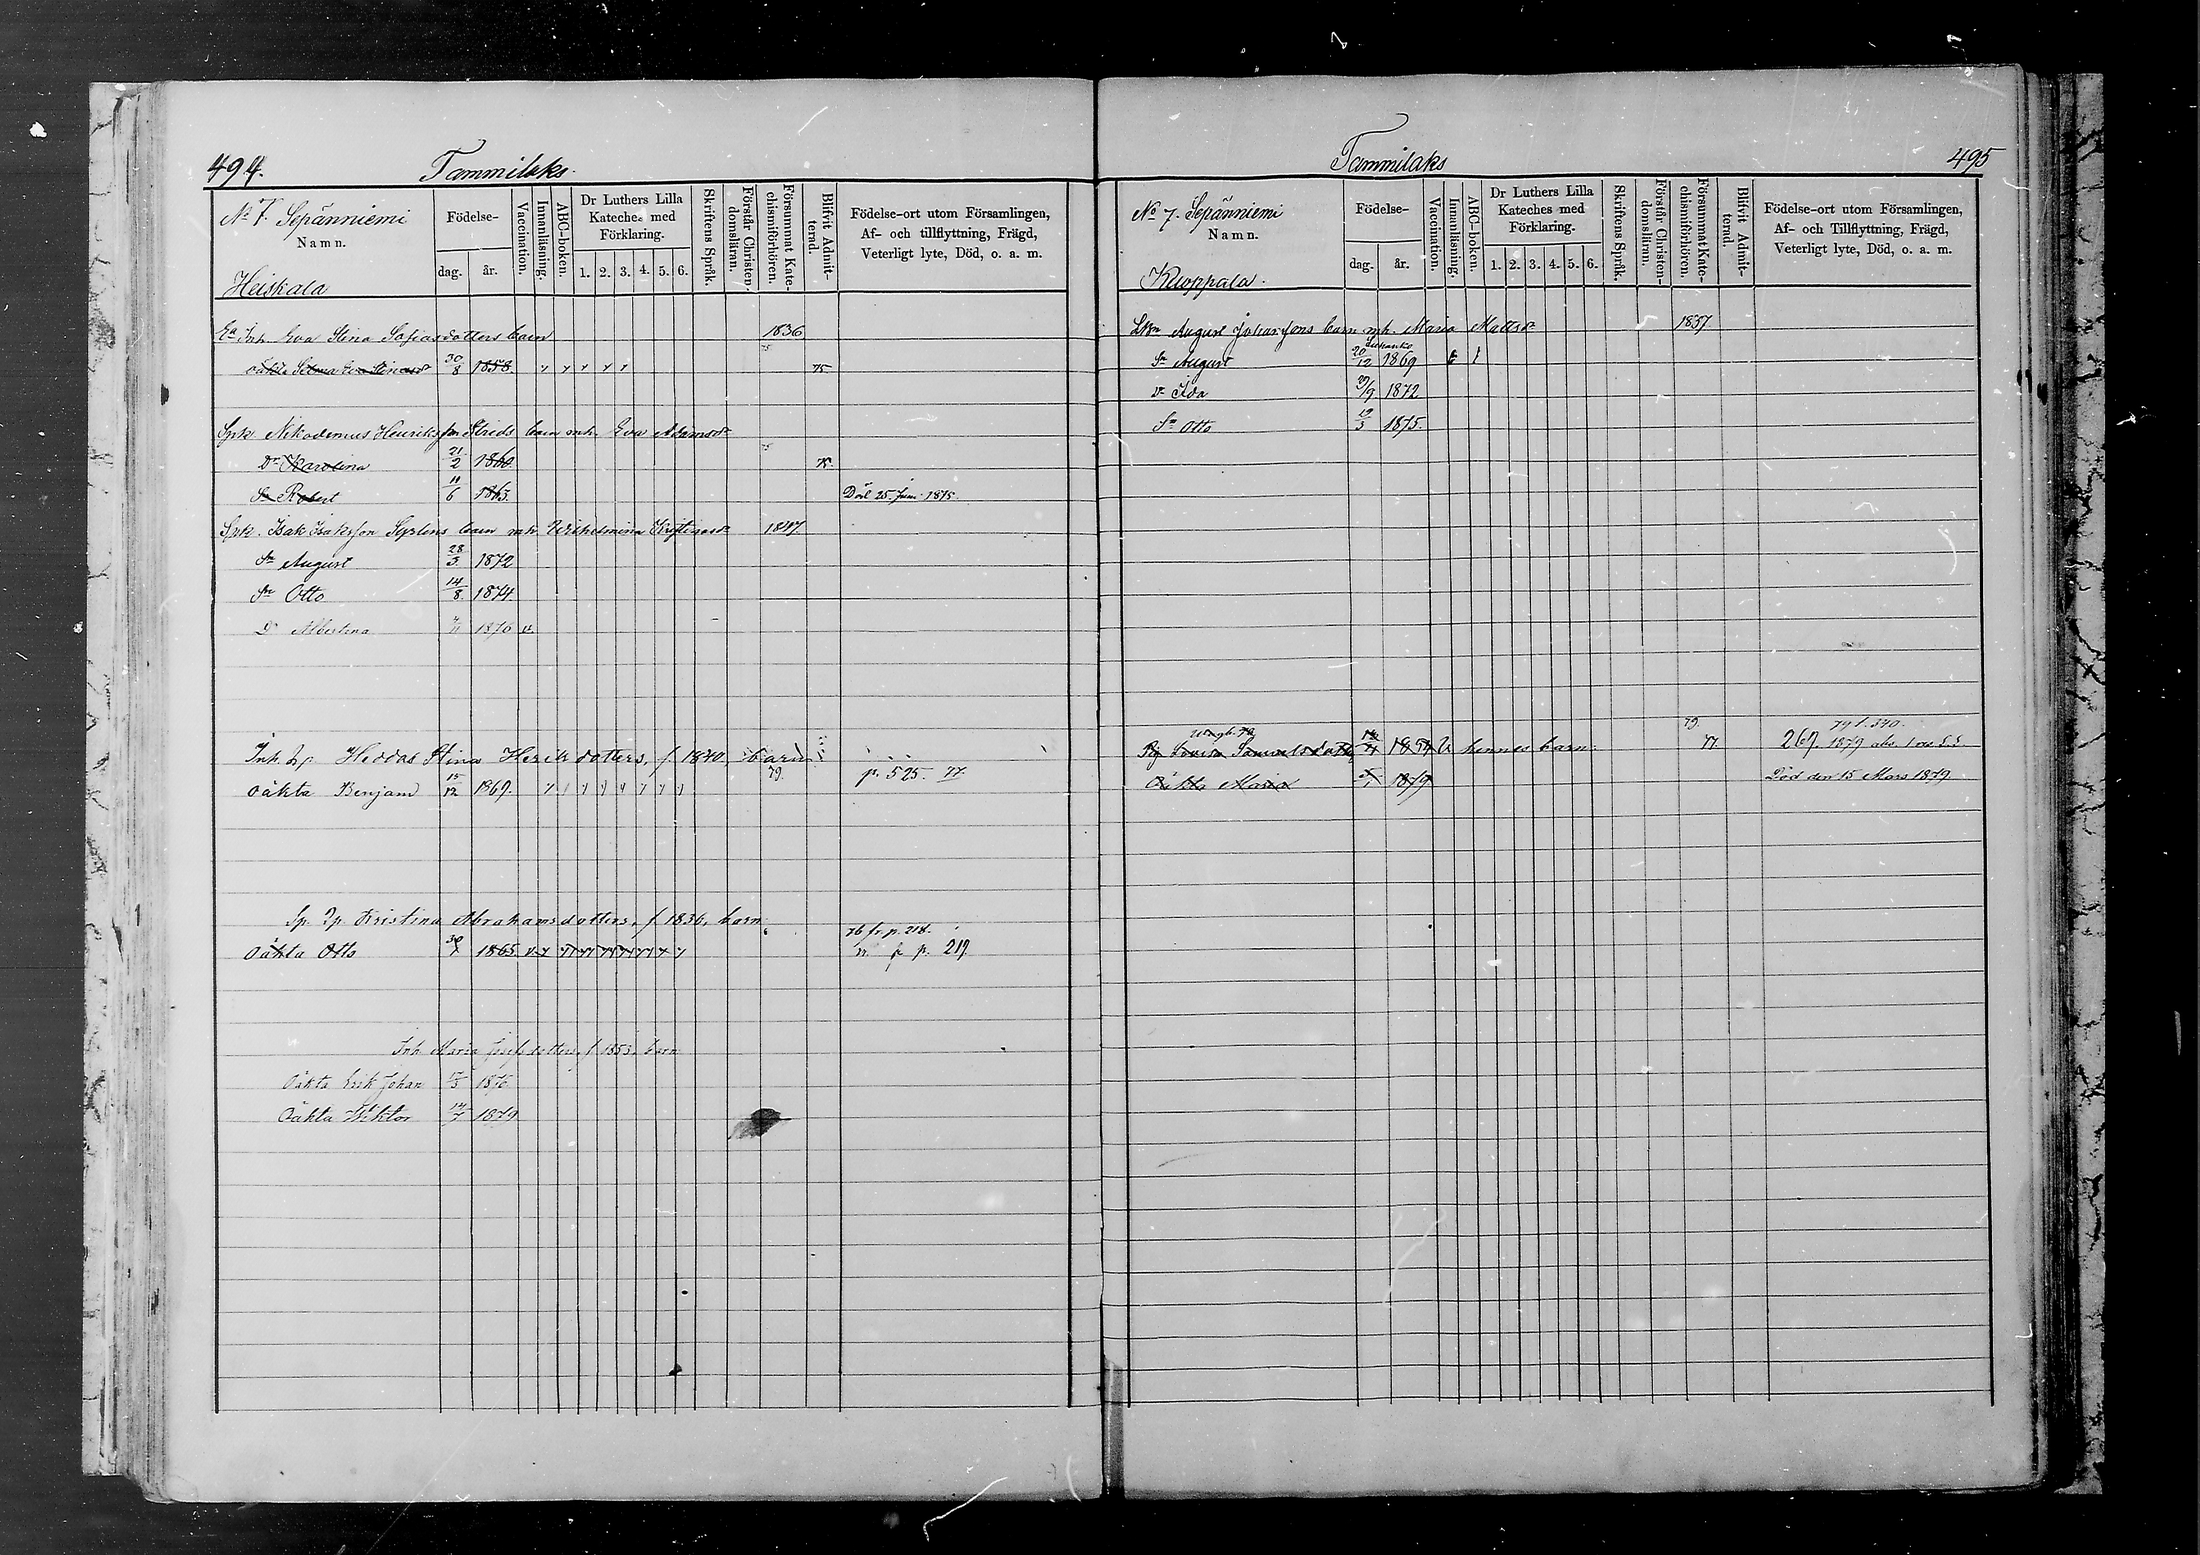 494.
Tammilaks.
No 7. Sepänniemi
Namn.
Heiskala
Födelse-
dag.
år.
Vaccination.
Innanläsning.
ABC-boken.
Dr Luthers Lilla
Kateches med
Förklaring.
1. 2. 3. 4. 5. 6.
Skriftens Språk.
Förstår Christen-
domsläran.
Försummat Kate-
chismiförhören.
Blifvit Admit-
terad.
Födelse-ort utom Församlingen,
Af- och tillflyttning, Frägd,
Veterligt lyte, Död, o. a. m.
Inh. Eva Stina Sofiasdotters barn 1836
oäkta Selma 30/8 1858. 75.
Spk Nikodemus Henriksson Strids barn mh. Eva Adamsdr
Dr Karolina 21/2 1860. 75.
Sn Robert 11/6 1863. Död 25 Juni 1875.
Spk. Isak Isaksson barn mh. Wilhelmina 1847.
Sn August 28/3 1872
Sn Otto 14/8 1874.
Dr Albertina 1876 v.
Inh. Heddas Stina dotters, f. 1840, barn
oäkta Benjam 15/12 1869. 79. p. 525. 77.
Sp. Kristina Abrahamsdotters, f. 1836, barn
76 fr. p. 218.
Oäkta Otto 1865 p. 219.
Inh. Maria Josefsdotters, f. 1853, barn
Oäkta Erik Johan 1876.
Oäkta Wiktor 14/7 1879
Tammilaks
495
No 7. Sepänniemi
Namn.
Kuoppala.
Födelse-
dag.
år.
Vaccination.
Innanläsning.
ABC-boken.
Dr Luthers Lilla
Kateches med
Förklaring.
1. 2. 3. 4. 5. 6.
Skriftens Språk.
Förstår Christen-
domsläran.
Försummat Kate-
chismiförhören.
Blifvit Admit-
terad.
Födelse-ort utom Församlingen,
Af- och Tillflyttning, Frägd,
Veterligt lyte, Död, o. a. m.
August Johanssons barn mh. Maria Mattsdr 1837
Sn August 20/12 1869
Dr Ida 29/9 1872
Sn Otto 19/5 1875.
79. 79 f. 340.
Lovisa Samuelsdotter hennes barn. 77. 269. 1879
Oäkta Maria 1879 Död den 15 Mars 1879